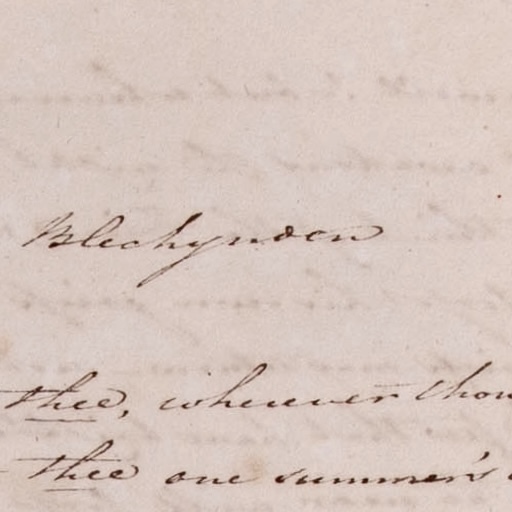 Blechynden
thee, wherever thou
thee one summer's